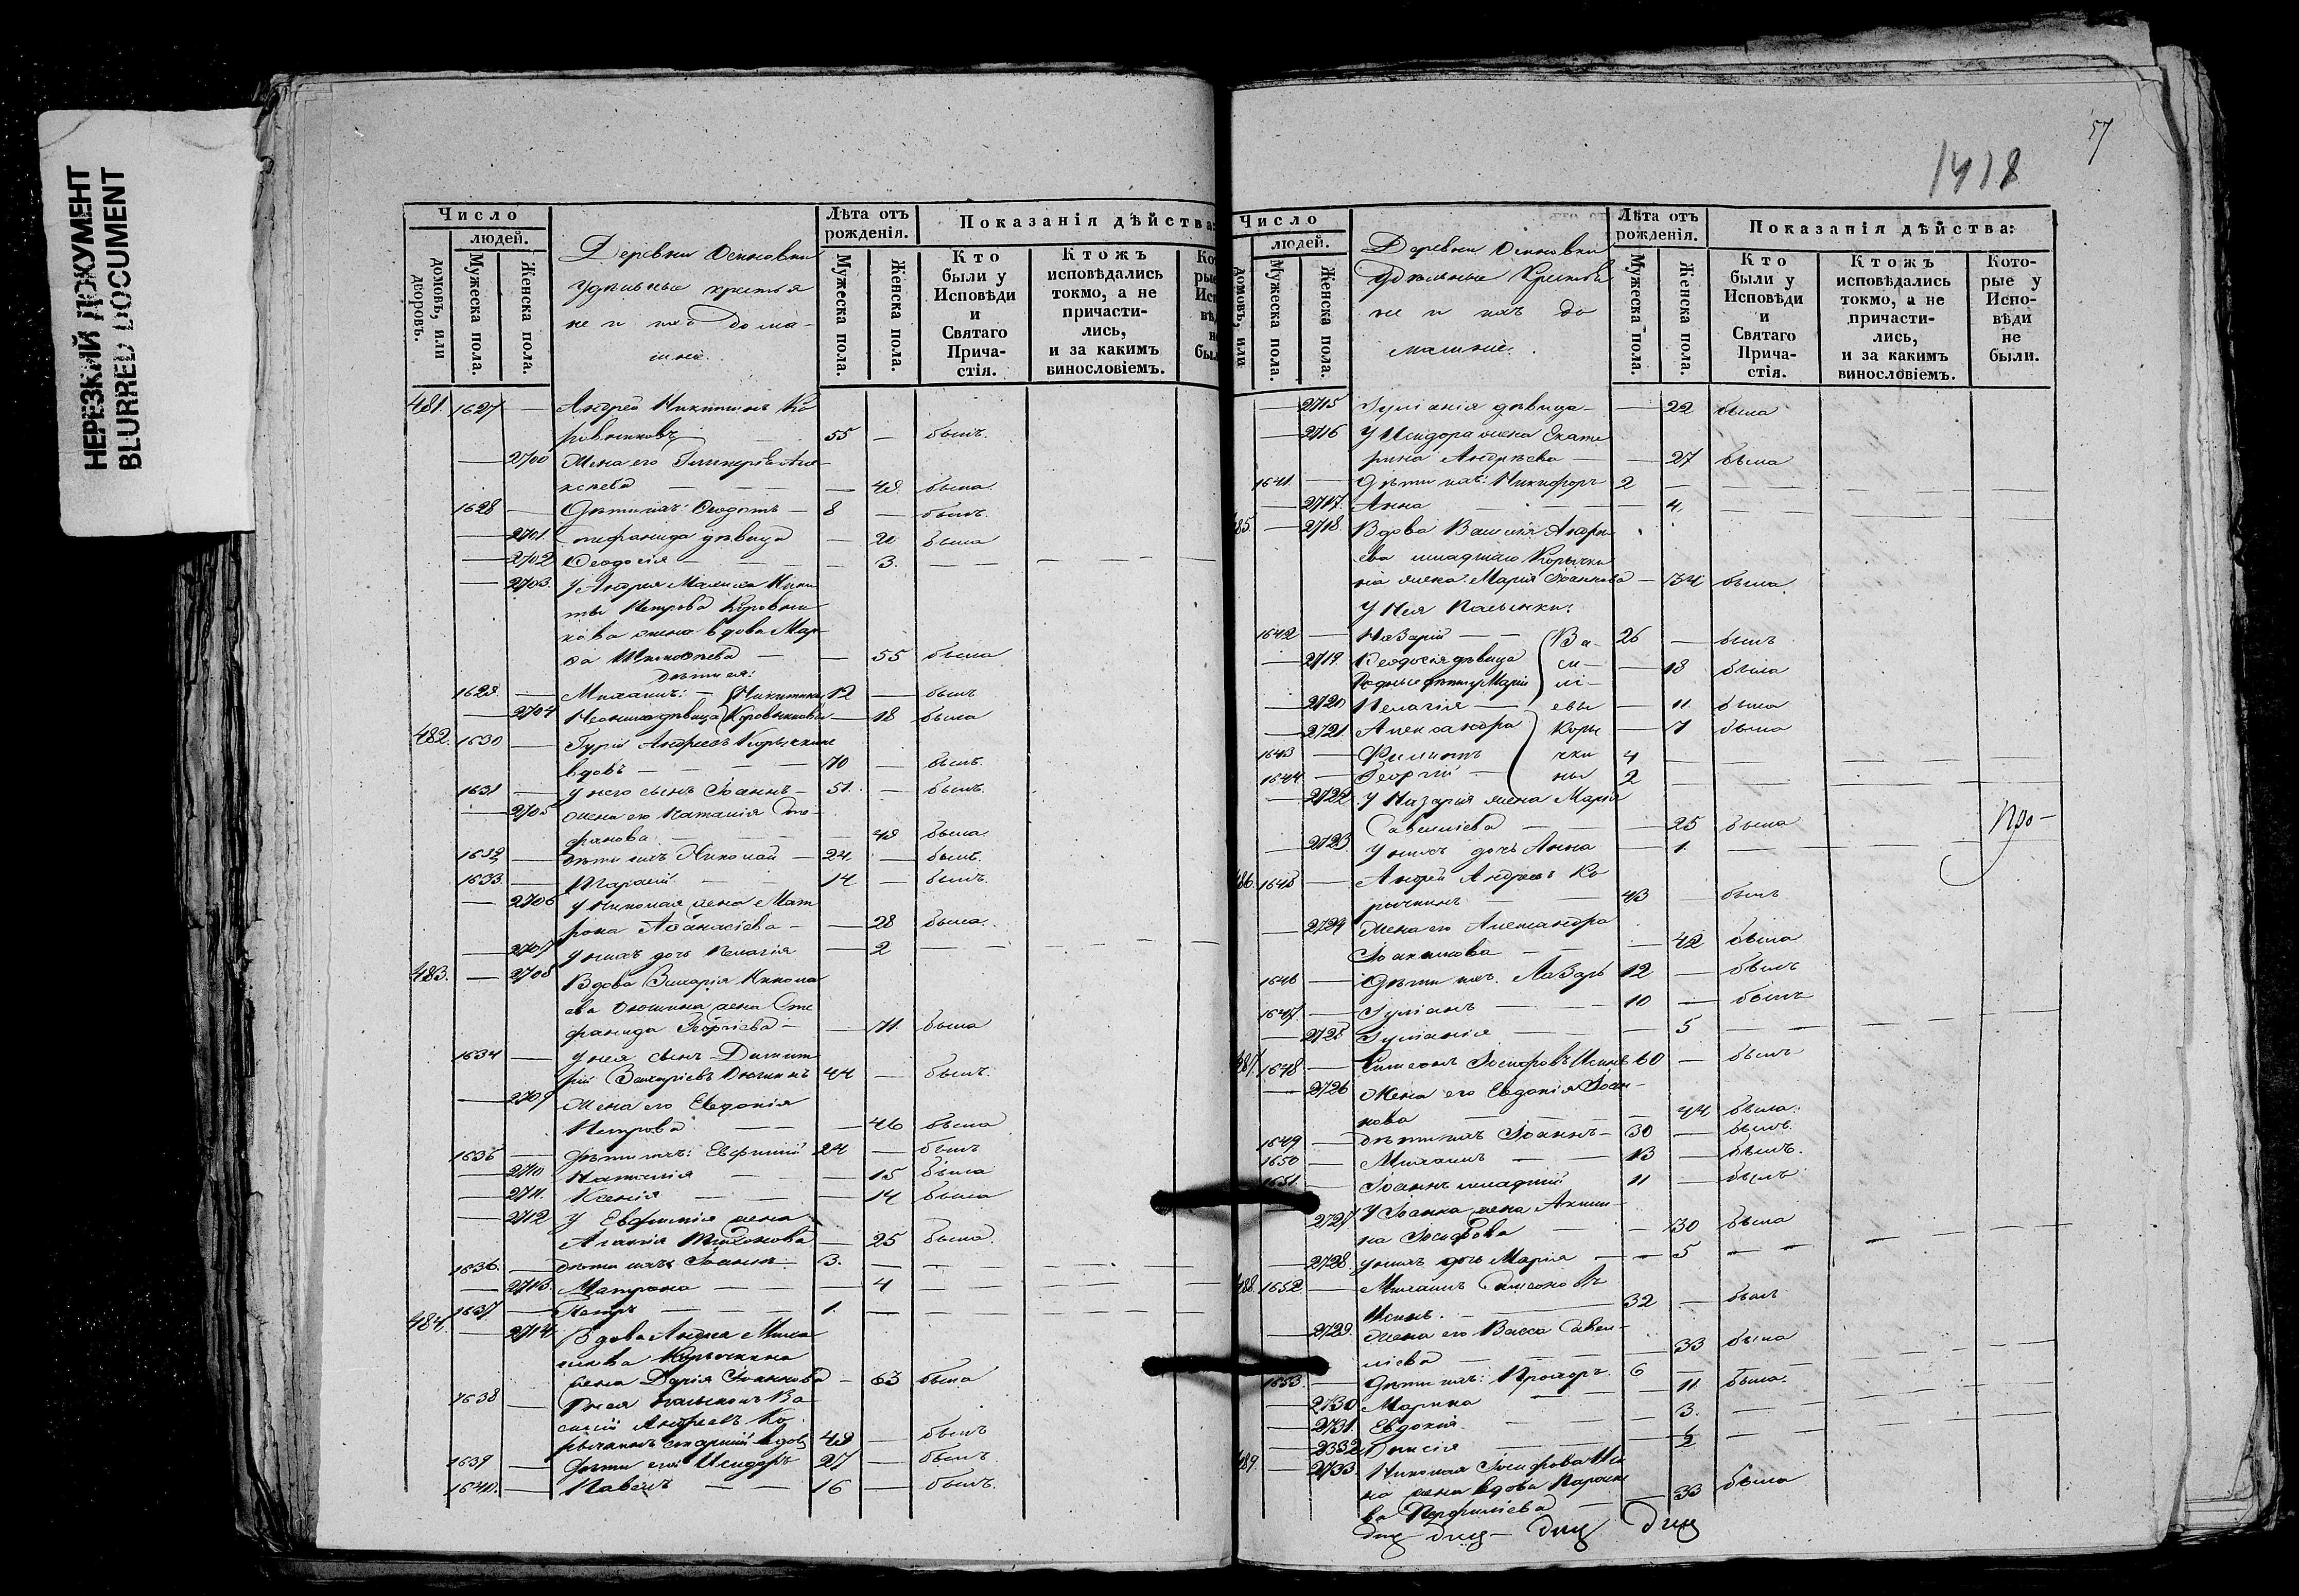 НЕРЕЗКИЙ ДОКУМЕНТ
BLURRED DOCUMENT
Число
людей.
домовъ, или дворовъ.
Мужеска пола.
Женска пола.
Деревни Осиновки
Удѣльные крестья
не и ихъ дома-
шніе.
Лѣта отъ рожденія.
Мужеска пола.
Женска пола.
Показанія дѣйства:
Кто были у Исповѣди и Святаго Прича-стія.
Ктожъ исповѣдались токмо, а не причасти-лись, и за какимъ винословіемъ.
481. 1627 — Андрей Никитинъ Ко
ровниковъ — 55 — былъ.
— 2700 Жена его Гликерія Але
ксѣева — — 48. была.
1628 — Дѣти ихъ: Ѳедотъ — 8 — былъ.
— 2701. дѣвица — 20 была
— 2702 Ѳеодосія — — 3. — —
— 2703. У Андрея Ники
ты Петрова Коровни
кова жена вдова Мар-
ѳа — — 55 была
Дѣти ея:
1629. — Михаилъ: — Никитины 12 — былъ
— 2704 дѣвица Коровниковы — 18 была
482. 1630 — Гурій Андреевъ Корычкинъ
вдовъ — — 70 — былъ.
1631 — У него сынъ Іоаннъ — 51. — былъ.
— 2705 Жена его Наталія Сте-
фанова — — 48 была.
1632 — Дѣти ихъ Николай — 24 — былъ.
1633. — Тарасій — 14 — былъ.
— 2706 У Николая жена Мат
рона Аѳанасіева — — 28 была.
— 2707 У нихъ дочь Пелагія — 2 — — —
483. — 2708 Вдова Никола
ева жена Сте
фанида Георгіева — — 71. была
1634 — У нея сынъ Димит
рій 44 — былъ.
— 2709 Жена его Евдокія
Петрова — — 46 была
1635 — Дѣти ихъ: Евфимій 24 — былъ
— 2710 Наталія — — 15 была
— 2711. Ксенія — — 14 была
— 2712 У Евфимія жена
Агафія Тихонова — 25 была.
1636. — Дѣти ихъ: Іоаннъ — 3. — —
— 2713. Матрона — — 4 —
1637 — Петръ — — 1. — —
484. — 2714 Вдова Андрея Миха
илова Корычкина
жена Дарія Іоаннова — 63 была
1638 — У нея пасынокъ Ва
силій Андреевъ Ко-
рычкинъ старшій вдов 48 — былъ
1639 — Дѣти его: Исидоръ 27 — былъ.
1640. — Павелъ — — 16 — былъ.
57
1418
Число
людей.
домовъ, или
Мужеска пола.
Женска пола.
Деревни Осиновки
Удѣльные Крестья
не и ихъ до
машніе.
Лѣта отъ рожденія.
Мужеска пола.
Женска пола.
Показанія дѣйства:
Кто были у Исповѣди и Святаго Прича-стія.
Ктожъ исповѣдались токмо, а не причасти-лись, и за какимъ винословіемъ.
Кото-рые у Испо-вѣди не были.
— 2715 Іуліанія дѣвица — — 22 была
— 2716 У Исидора жена Екате
рина Андреева — — 27 была
1641. — Дѣти ихъ: Никифоръ 2 — —
— 2717. Анна — — 4. — —
485. — 2718. Вдова Василія Андре
ева младшаго Корычки
на жена Марія Іоаннова — 34 была.
У нея Пасынки:
1642 — Назарій — — Ва- 26 — былъ
— 2719. Ѳеодосія дѣвица си- — 18 была
Родные дѣти у Маріи лі-
— 2720 Пелагія — евы — 11. была
— 2721 Александра Коры — 7 была
1643 — Филиппъ чки 4 — —
1644 — Георгій — ны 2 — —
— 2722 У Назарія жена Марія
Савеліева — — 25 была
Про-
— 2723. У нихъ дочь Анна — 1. — —
486. 1645 — Андрей Андреевъ Ко
рычкинъ — — 43 — былъ
— 2724 Жена его Александра
Іоакимова — — 42 была
1646 — Дѣти ихъ: Лазарь 12 — былъ
1647. — Іуліанъ — — 10 — былъ
— 2725 Іуліанія — — 5 — —
487. 1648 — Симеонъ Іосифовъ 60 — былъ
— 2726 Жена его Евдокія Іоан-
нова — — 44 была.
1649 — Дѣти ихъ Іоаннъ — 30 — былъ.
1650 — Михаилъ — — 13 — былъ.
1651. — Іоаннъ младшій 11 — былъ
2727 У Іоанна жена Акили-
на Іосифова — — 30 была
— 2728. У нихъ дочь Марія — — 5 — —
488. 1652 — Михаилъ Симеоновъ
32 — былъ
— 2729. Жена его Васса Савел-
ліева — — 33 была
1653. — Дѣти ихъ: Прохоръ. 6 — —
— 2730 Марина — — 11. была.
— 2731. Евдокія — — 3. — —
— 2332 — — 2 — —
489. — 2733. Николая Іосифова
на жена вдова Параске
ва Перфиліева — — 33 была